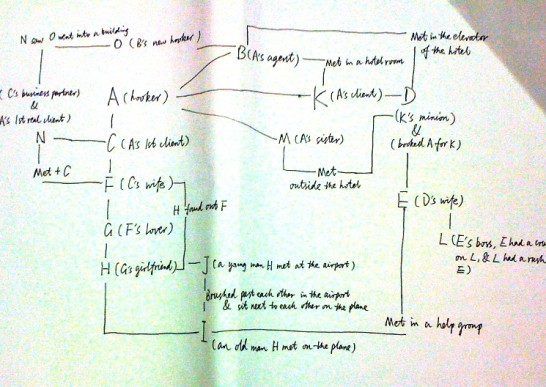 N saw O went into a building
O (B's new hooker)
Met in the elevator
of the hotel
B (A's agent)
Met in a hotel room
(C's business partner)
&
A's 1st real client)
A (hooker)
K (A's client)
D
(K's minion)
&
(booked A for K)
N
C (A's 1st client)
M (A's sister)
Met + C
Met
outside the hotel
F (C's wife)
H found out F
E (D's wife)
G (F's lover)
L (E's boss, E had a
on L, & L had a
E)
H (G's girlfriend)
J (a young man H met at the airport)
Brushed past each other in the airport
& sit next to each other on the plane
Met in a help group
I
(an old man H met on the plane)